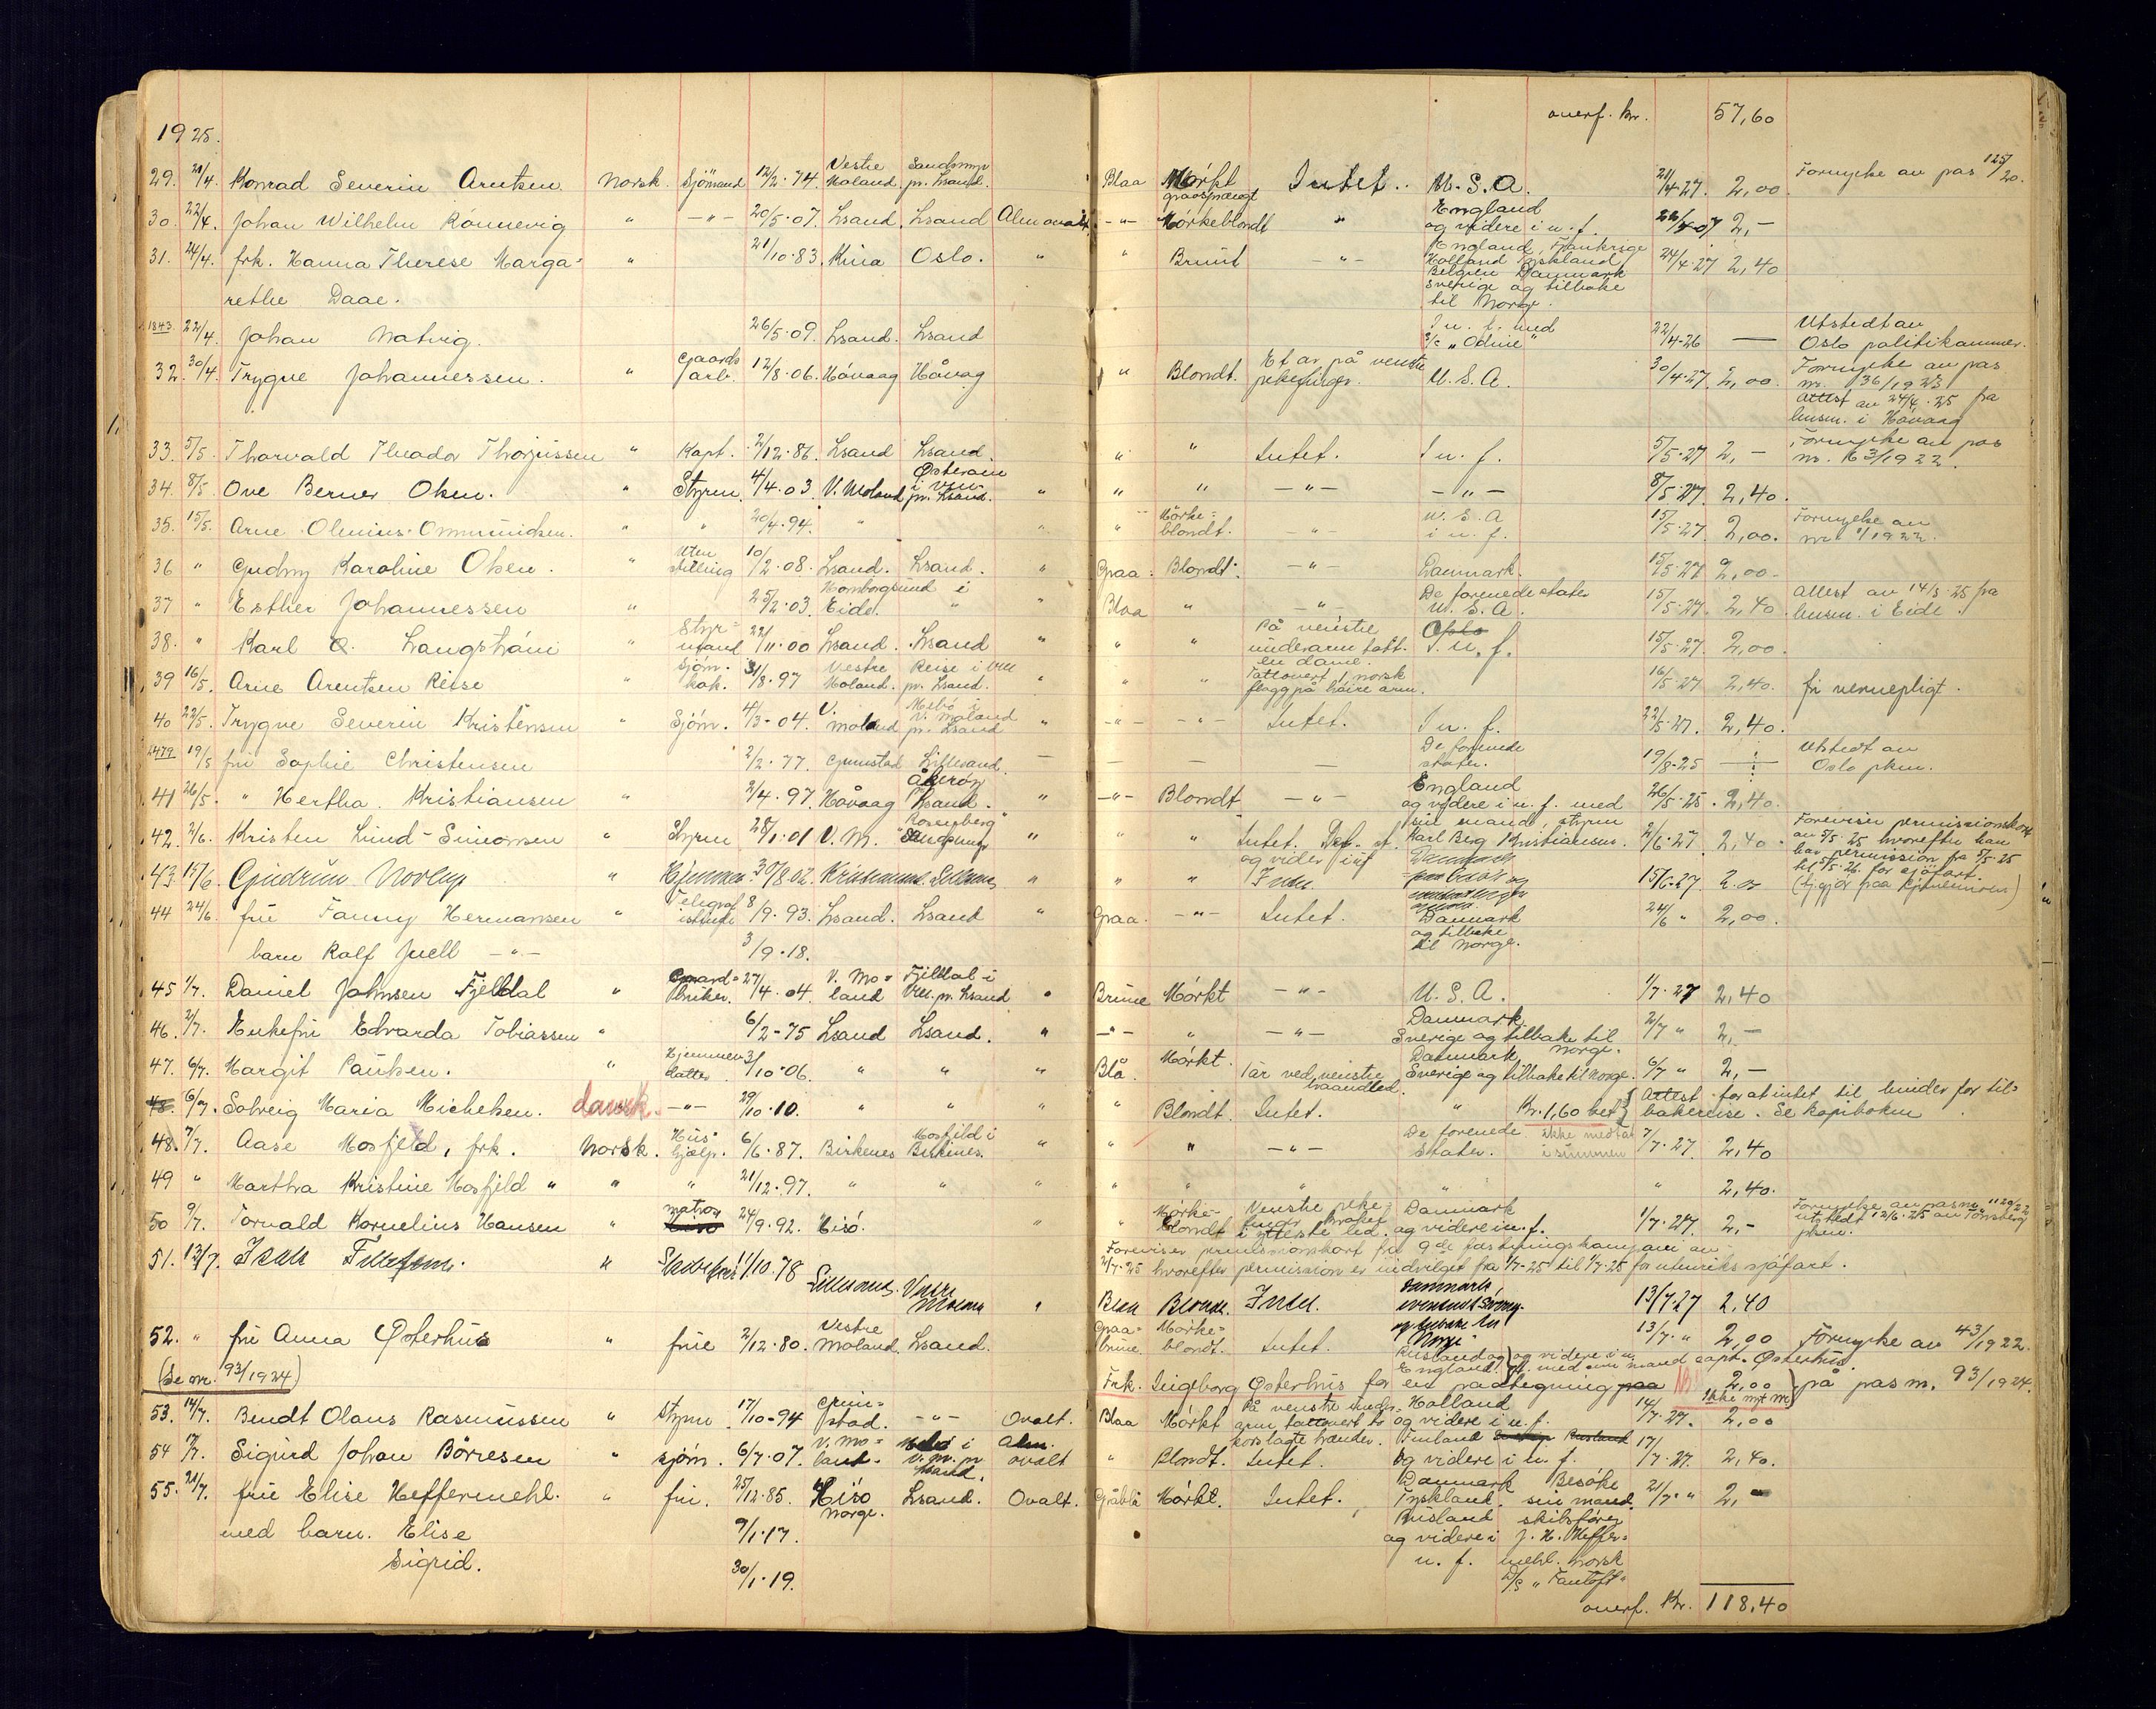 1925.
overf. Kr. 57,60
29. 21/4. Konrad Severin Arntsen Norsk. Sjömand 12/2.74. Vestre Moland. Sandsmyr pr. Lsand. Blaa Mörkt graasprængt Intet. U.S.A. 21/4.27. 2,00. Fornyelse av pas 125/20.
30. 22/4. Johan Wilhelm Rönnevig " -"- 20/5.07. Lsand. Lsand Alm ovalt. -"- Mörkeblondt " England og videre i u. f. 22/4.07 2,-
31. 24/4. frk. Hanna Therese Marga- " 21/10.83. Kina Oslo. " " Brunt -"- England, Frankrige Holland Tyskland Belgien Danmark Sverige og tilbake til Norge. 24/4.27 2,40
rethe Daae.
1843. 22/4. Johan Natvig. 26/5.09. Lsand. Lsand I u. f. med S/S "Odin" 22/4.26 — Utstedt av Oslo politikammer.
32. 30/4. Trygve Johannessen. " Gaards arb. 12/8.06. Hövaag Hövåg " Blondt. Et ar på venstre pekefinger. U.S.A. 30/4.27. 2,00. Fornyelse av pas nr. 36/1923 Attest av 24/4.25 fra lensm. i Hövaag
33. 5/5. Thorvald Theodor Thorjussen " Kapt. 2/12.86. Lsand Lsand. " " Intet. I u. f. 5/5.27 2,- Fornyelse av pas nr. 63/1922.
34. 8/5. Ove Berner Olsen. " Styrm. 4/4.03. V. Moland Österøen i V.M. pr. Lsand. " " " -"- -"- 8/5.27. 2,40.
35. 15/5. Arne Olenius Ommundsen. " " 20/4.94. " " " Mörke- blondt. -"- U.S.A i u. f. 15/5.27. 2,00. Fornyelse av nr. 1/1922.
36 " Gudny Karoline Olsen. " Uten stilling 10/2.08. Lsand. Lsand. " Graa. Blondt. -"- Danmark. 15/5.27 2,00-
37 " Esther Johannessen " 25/2.03. Homborgsund i Eide. " " Blaa " -"- De forenede stater U.S.A. 15/5.27. 2,40. Attest av 14/5.25 fra lensm. i Eide.
38. " Karl O. Langstrån " Styr- mand 22/11.00 Lsand. Lsand " " " På venstre underarm tatt. en dame. I u. f. 15/5.27. 2,00.
39 16/5. Arne Arentsen Reise " Sjöm. kok. 31/8.97 Vestre Moland. Reise i V.M. pr. Lsand. " " " Tattovert 1 norsk flagg på höire arm. 16/5.27 2,40. fri vernepligt.
40 22/5. Trygve Severin Kristensen " Sjöm. 4/3-04. V. Moland Mebö i V. Moland pr. Lsand " -"- -"- Intet. I u. f. 22/5.27. 2,40.
2479. 19/5 fru Sophie Christensen 2/2.77. Grimstad Lillesand. — — — — De forenede stater. 19/8-25 — Utstedt av Oslo pkm.
41 26/5. " Hertha Kristiansen " 2/4.97. Hövaag Åkeröy Lsand. " -"- Blondt -"- England og videre i u. f. med sin mand, styrm Karl Berg Kristiansen. 26/5.25. 2,40.
42. 2/6. Kristen Lund-Simonsen " Styrm 28/1.01 V. M. "Rosenberg" " " " Intet. og videre i uf 2/6.27. 2,40. Foreviser permissionskort av 5/5.25 hvorefter han har permission fra 5/5.25 til 5/5.26. for sjöfart.
43. 15/6. Gudrun Norup " Hjemmev 30/8.02. " " Intet. 15/6.27 2.00
44 24/6. fru Fanny Hermansen " Telegraf istinde 8/9.93. Lsand. Lsand " Graa. -"- Intet. Danmark og tilbake til Norge. 24/6 " 2,00.
barn Rolf Juell -"- 3/9.18.
45 1/7. Daniel Johnsen Fjeldal " Gaard- bruker. 27/4.04. V. Mo- land Fjeldal i V.M. pr. Lsand " Brune Mörkt -"- U.S.A. 1/7.27 2,40
46. 2/7. Enkefru Edvarda Tobiassen " 6/2-75 Lsand Lsand. " -"- " -"- Danmark Sverige og tilbake til Norge. 2/7 " 2,-
47. 6/7. Margit Paulsen. " Hjemmev datter 31/10-06. " " " Blå. Mörkt. 1 ar ved venstre haandled. Danmark Sverige og tilbake til Norge. 6/7 " 2,-
48. 6/7. Solveig Maria Michelsen. dansk. -"- 29/10.10. " " " " Blondt. Intet. " Kr. 1,60 bet. Attest for at intet til hinder for til- bakereise. Se kopiboken
48. 7/7. Aase Mosfjeld, frk. Norsk. Hus- hjælp. 6/6.87. Birkenes Mosfjeld i Birkenes. " " " -"- De forenede Stater. ikke medtat i summen 7/7.27. 2,40
49 " Martha Kristine Mosfjeld " " " 21/12.97. " " " " " " " " 2,40.
50 9/7. Torvald Kornelius Hansen " matros 24/9.92. Hisö. " " Mörke- blondt Venstre peke- finger kroket i ytterste led. Danmark og videre i u. f. 1/7.27. 2,- Fornyelse av pas nr. 1129/22 utstedt 12/6.25 av Tönsberg pkm.
Foreviser permissionskort fra 9de fæstningskompani av
2/7.25 hvorefter permission er indvilget fra 1/7-25 til 1/7.26 for utenriks sjöfart.
51. 13/7. " 11/10.78 Lillesand. Vestre Moland " Blaa Blonde. Intet. Danmark, eventuelt Sverige og tilbake til Norge 13/7.27 2.40
52. " fru Anna Østerhus " frue 2/12.80. Vestre Moland. Lsand. Graa- brune. Mörke- blondt. Intet. Rusland og England og videre i u. f. med sin mand capt. Østerhus. 13/7. " 2,00 Fornyelse av 43/1922.
(Se nr. 93/1924)
Frk. Ingeborg Østerhus for en paategning paa NB! 2,00 på pas nr. 93/1924. ikke mt nr.
53. 14/7. Bendt Olaus Rasmussen " styrm 17/10-94 Grim- stad. -"- Ovalt. Blaa Mörkt På venstre under- arm tattovert to korslagte hænder. Holland og videre i u. f. 14/7.27. 2,00
54 17/7. Sigurd Johan Börresen " sjöm. 6/7.07. V. Mo- land. Mebö i V. M. pr. Lsand. Alm. ovalt " Blondt. Intet. Finland Sverige Rusland og videre i u. f. 17/7.27. 2,40.
55. 21/7. frue Elise Heffermehl. " fru. 25/12.85. Hisö Norge. Lsand. Ovalt. Gråblå Mörkt. Intet. Danmark Tyskland. Rusland og videre i u. f. Besöke sin mand. skibsförer J. H. Heffer- mehl. norsk D/S "Fantoft" 21/7. " 2,-
med barn. Elise 9/1.17.
Sigrid. 30/1.19.
overf. Kr. 118,40